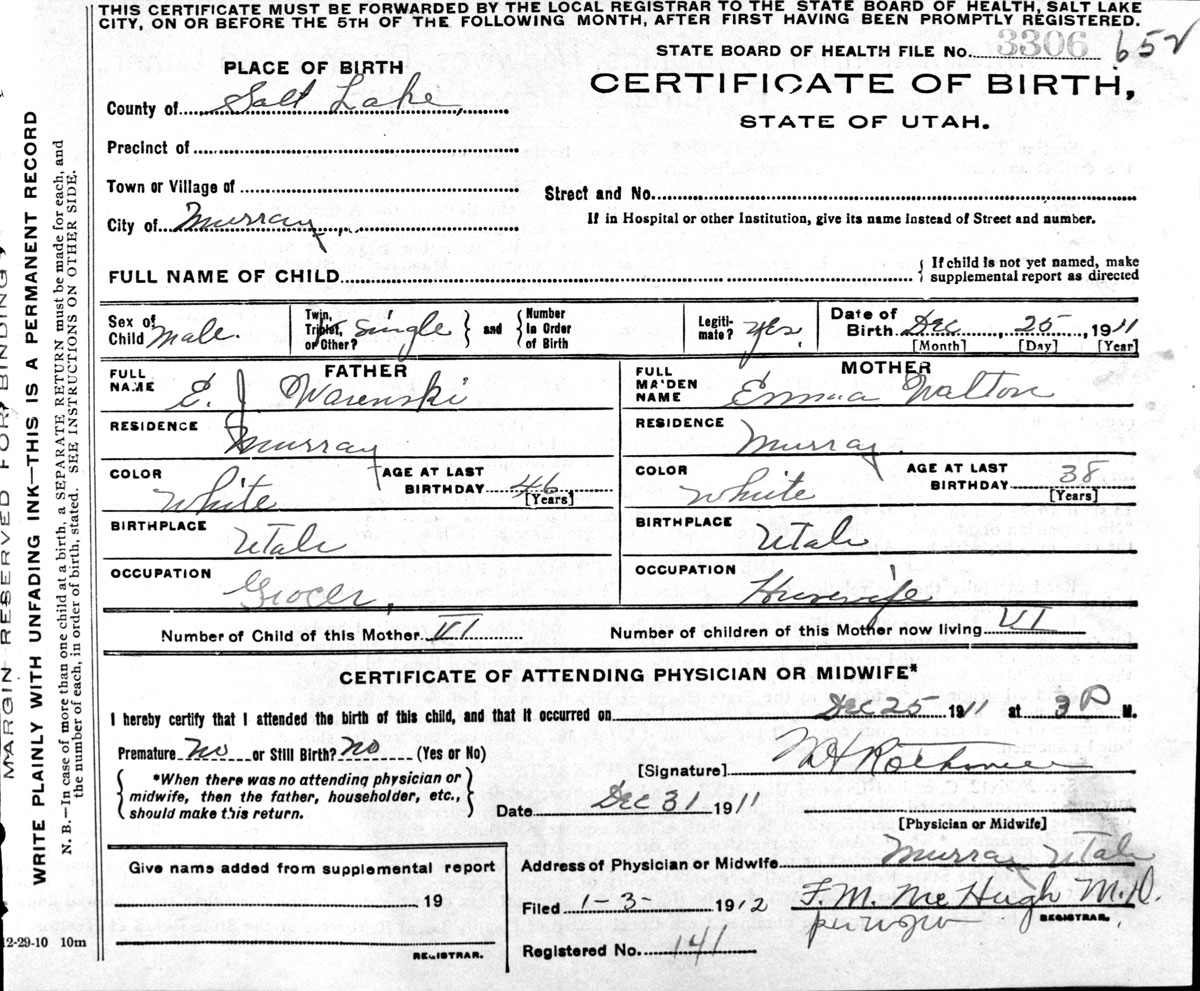 THIS CERTIFICATE MUST BE FORWARDED BY THE LOCAL REGISTRAR TO THE STATE BOARD OF HEALTH, SALT LAKE
CITY, ON OR BEFORE THE 5TH OF THE FOLLOWING MONTH, AFTER FIRST HAVING BEEN PROMPTLY REGISTERED.
STATE BOARD OF HEALTH FILE No. 3306 652
PLACE OF BIRTH
CERTIFICATE OF BIRTH,
STATE OF UTAH.
County of Salt Lake,
Precinct of
Town or Village of
Street and No.
City of Murray
If in Hospital or other Institution, give its name instead of Street and number.
FULL NAME OF CHILD { If child is not yet named, make
supplemental report as directed
Sex of Child Male.
Twin, Triplet, or Other? Single } and { Number In Order of Birth
Legiti-mate? Yes.
Date of Birth Dec 25, 1911
[Month] [Day] [Year]
FATHER
FULL NAME E. J Warenski
RESIDENCE Murray
COLOR White AGE AT LAST BIRTHDAY 46 [Years]
BIRTHPLACE Utah
OCCUPATION Grocer,
MOTHER
FULL MAIDEN NAME Emma Walton
RESIDENCE Murray
COLOR White AGE AT LAST BIRTHDAY 38 [Years]
BIRTHPLACE Utah
OCCUPATION Housewife
Number of Child of this Mother VI Number of children of this Mother now living VI
CERTIFICATE OF ATTENDING PHYSICIAN OR MIDWIFE*
I hereby certify that I attended the birth of this child, and that it occurred on Dec 25 1911 at 3 P M.
Premature no or Still Birth? no (Yes or No)
*When there was no attending physician or
midwife, then the father, householder, etc.,
should make this return.
[Signature]
Date Dec 31 1911
[Physician or Midwife]
Address of Physician or Midwife Murray Utah
Give name added from supplemental report
19
REGISTRAR.
Filed 1-3- 1912 F. M. McHugh M.D.
per
REGISTRAR.
Registered No. 141
12-29-10 10m
MARGIN RESERVED FOR BINDING
WRITE PLAINLY WITH UNFADING INK—THIS IS A PERMANENT RECORD
N. B.—In case of more than one child at a birth, a SEPARATE RETURN must be made for each, and
the number of each, in order of birth, stated. SEE INSTRUCTIONS ON OTHER SIDE.